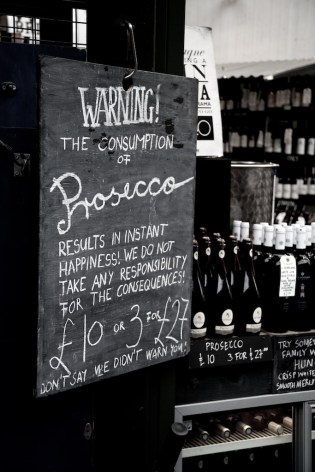 WARNING!
THE CONSUMPTION
OF
Prosecco
RESULTS IN INSTANT
HAPPINESS! WE DO NOT
TAKE ANY RESPONSIBILITY
FOR THE CONSEQUENCES!
£10 OR 3 FOR £27
DON'T SAY WE DIDN'T WARN YOU!
PROSECCO
£10 3 FOR £27
TRY SOME
FAMILY W
HUN
CRISP WHITE
SMOOTH MERL